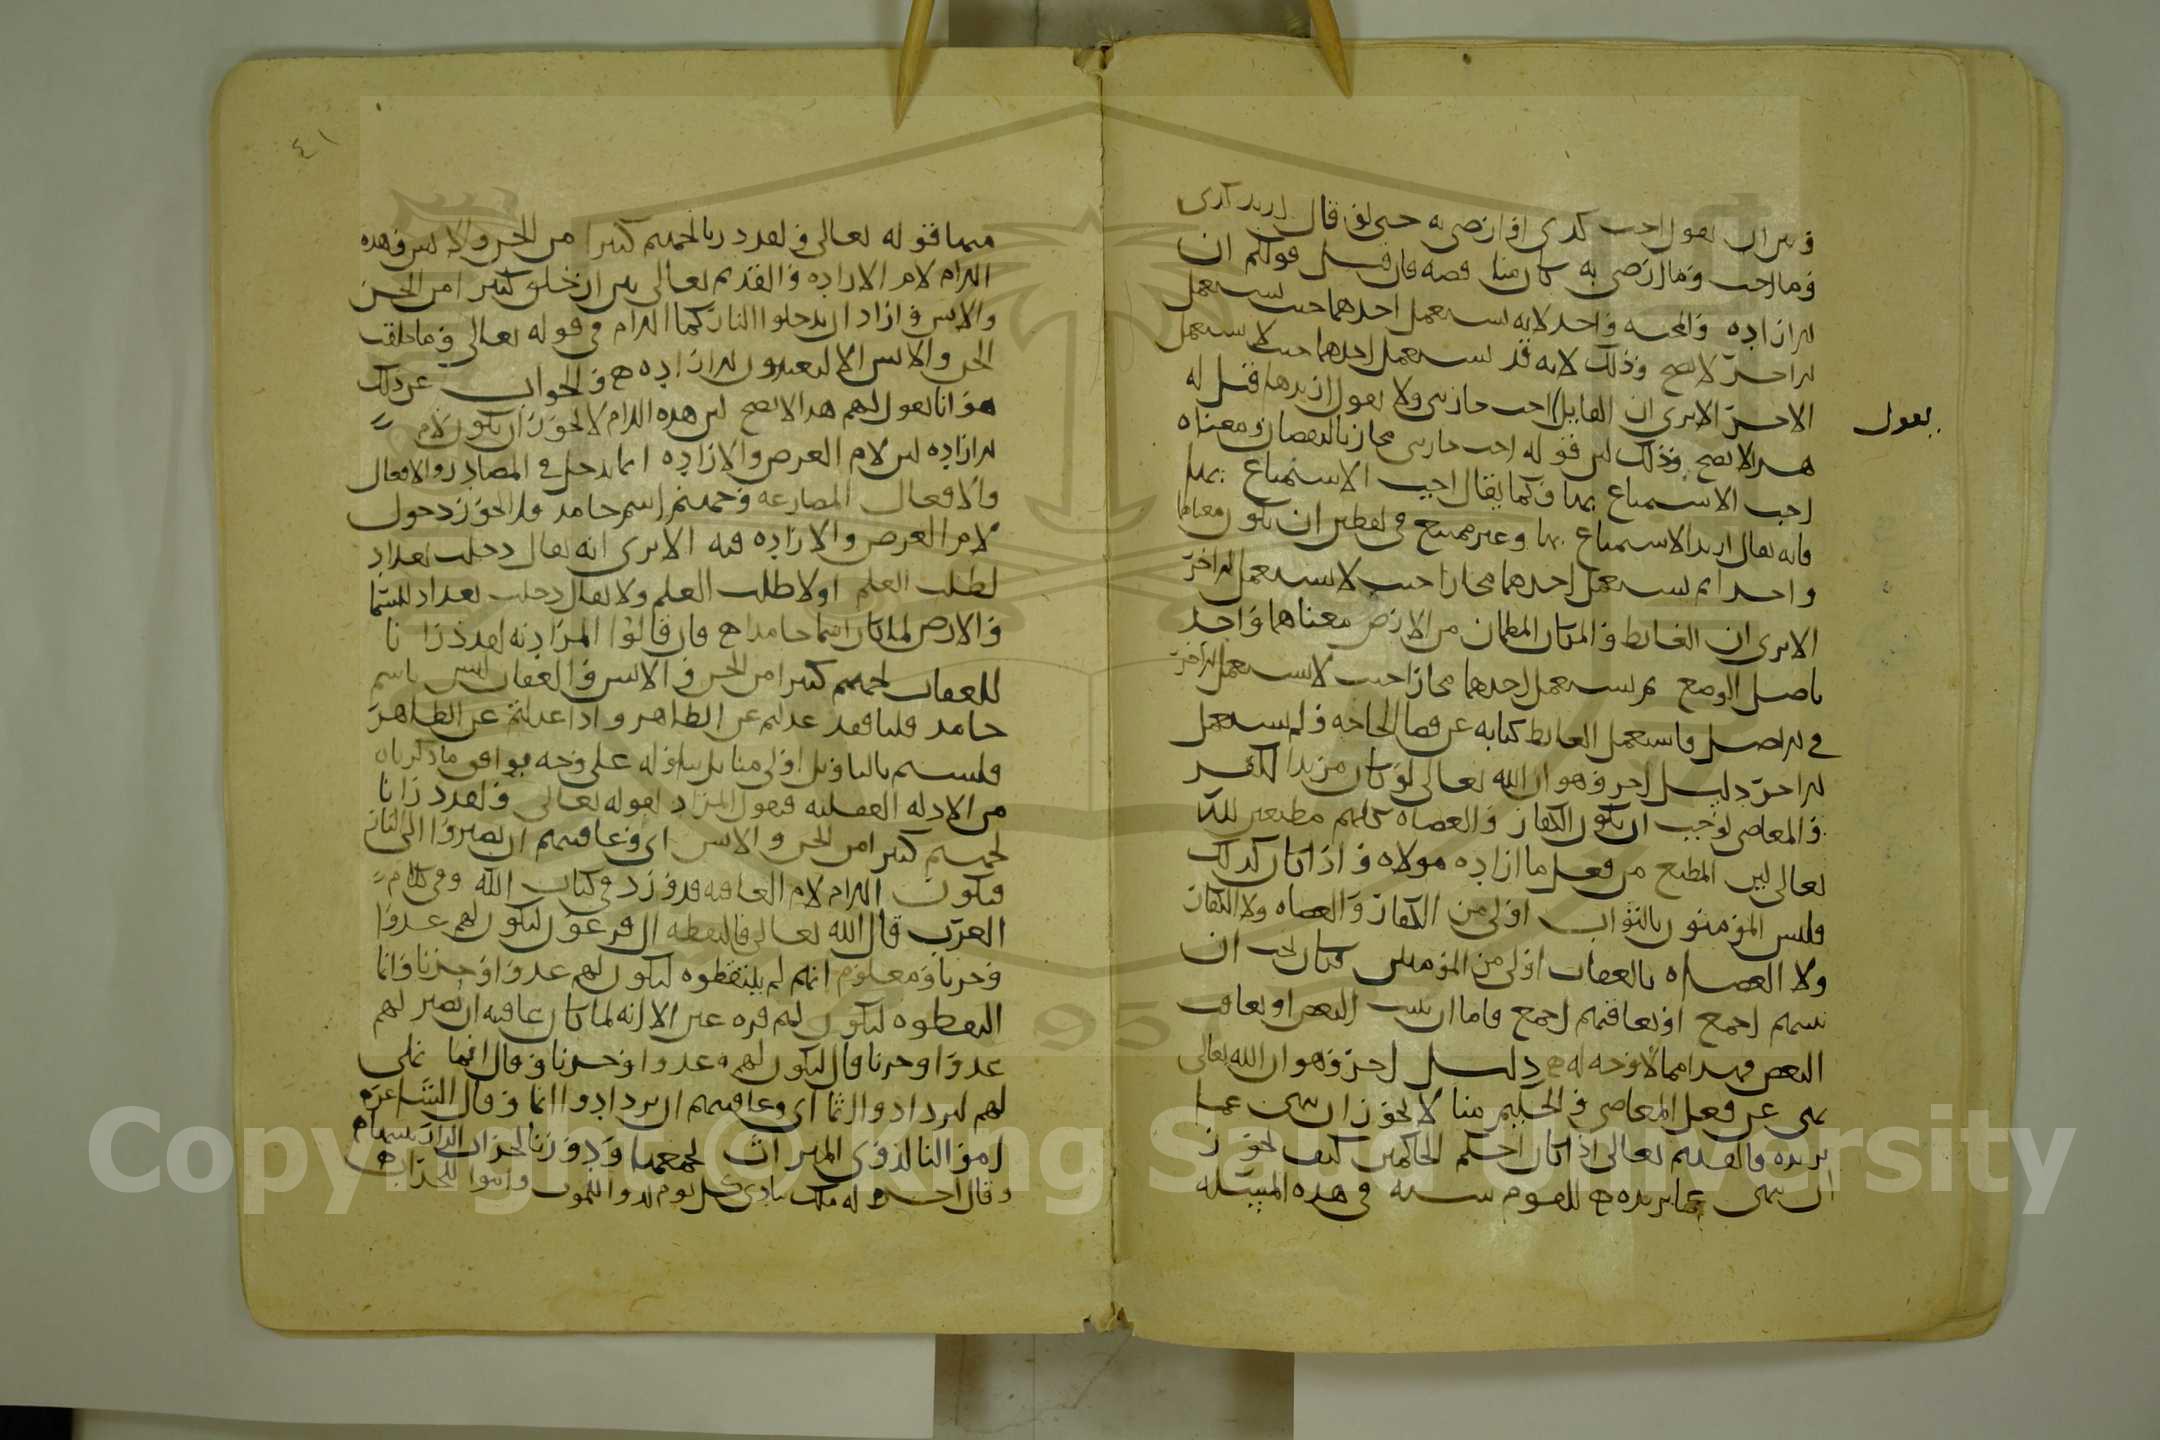 وبين ان يقول احب كذى او ارضى به حتى لو قال اريد كذى
وما احب وما ارضى به كان مناقضه فان قيل قولكم ان
الارادة والمحبة واحد لانه يستعمل احدهما حيث يستعمل
الاخر لا يصح وذلك لانه قد يستعمل احدهما حيث لا يستعمل
الاخر الا ترى ان القايل احب جاريتي ولا يقول اريدها قيل له
يقول
هذا لا يصح وذلك لان قوله احب جاريتي مجاز بالنقصان ومعناه
احب الاستمتاع بها وكما يقال احب الاستمتاع بها
فانه يقال اريد الاستمتاع بها وغير ممتنع في لفظين ان يكون معناهما
واحدا ثم يستعمل احدهما مجازا حيث لا يستعمل الاخر
الا ترى ان الغايط والمكان المطمان من الارض معناهما واحد
باصل الوضع ثم يستعمل احدهما مجازا حيث لا يستعمل الاخر
في الاصل فاستعمل الغايط كناية عن قضا الحاجة ولم يستعمل
الاخر دليل اخر وهو ان الله تعالى لو كان مريدا للكفر
والمعاصي لوجب ان يكون الكفار والعصاه كلهم مطيعين لله
تعالى لان المطيع من فعل ما اراده مولاه واذا كان كذلك
فليس المؤمنون بالثواب اولى من الكفار والعصاه ولا الكفار
ولا العصاه بالعقاب اولى من المؤمنين فكان يجب ان
يثيبهم اجمع او يعاقبهم اجمع فاما ان يثيب البعض او يعاقب
البعض فهذا مما لا وجه له دليل اخر وهو ان الله تعالى
نهى عن فعل المعاصي والحكيم منا لا يجوز ان ينهى عما
يريده فالقديم تعالى اذا كان احكم الحاكمين كيف يجوز
ان ينهى عما يريده للقوم شبه في هذه المسئلة
٤١
منها قوله تعالى ولقد ذرانا لجهنم كثيرا من الجن والانس وهذه
اللام لام الارادة والقديم تعالى بين انه خلق كثيرا من الجن
والانس واراد ان يدخلوا النار كما اللام في قوله تعالى وما خلقت
الجن والانس الا ليعبدون للارادة والجواب عن ذلك
هو انا نقول لهم هذا لا يصح لان هذه اللام لا يجوز ان تكون لام
الارادة لان لام الغرض والارادة انما تدخل في المصادر والافعال
والافعال المضارعه وجهنم اسم جامد فلا يجوز دخول
لام الغرض والارادة فيه الا ترى انه يقال دخلت بغداد
لطلب العلم او لاطلب العلم ولا يقال دخلت بغداد للسما
والارض لما كان اسما جامدا فان قالوا المراد به لقد ذرانا
للعقاب لجهنم كثيرا من الجن والانس والعقاب ليس باسم
جامد قلنا فقد عدلتم عن الظاهر واذا عدلتم عن الظاهر
فلستم بالتاويل اولى منا بل نتاوله على وجه يوافق ما ذكرناه
من الادلة العقليه فنقول المراد بقوله تعالى ولقد ذرانا
لجهنم كثيرا من الجن والانس اي وعاقبتهم ان يصيروا الى النار
فتكون اللام لام العاقبه قد ورد في كتاب الله وفي كلام
العرب قال الله تعالى فالتقطه ال فرعون ليكون لهم عدوا
وحزنا ومعلوم انهم لم يلتقطوه ليكون لهم عدوا وحزنا وانما
التقطوه ليكون لهم قرة عين الا انه لما كان عاقبته ان يصير لهم
عدوا وحزنا قال ليكون لهم عدوا وحزنا وقال انما نملي
لهم ليزدادوا اثما اي وعاقبتهم ان يزدادوا اثما وقال الشاعر
اموالنا لذوي الميراث نجمعها ودورنا لخراب الدهر نبنيها
وقال اخر له ملك ينادي كل يوم لدوا للموت وابنوا للخراب